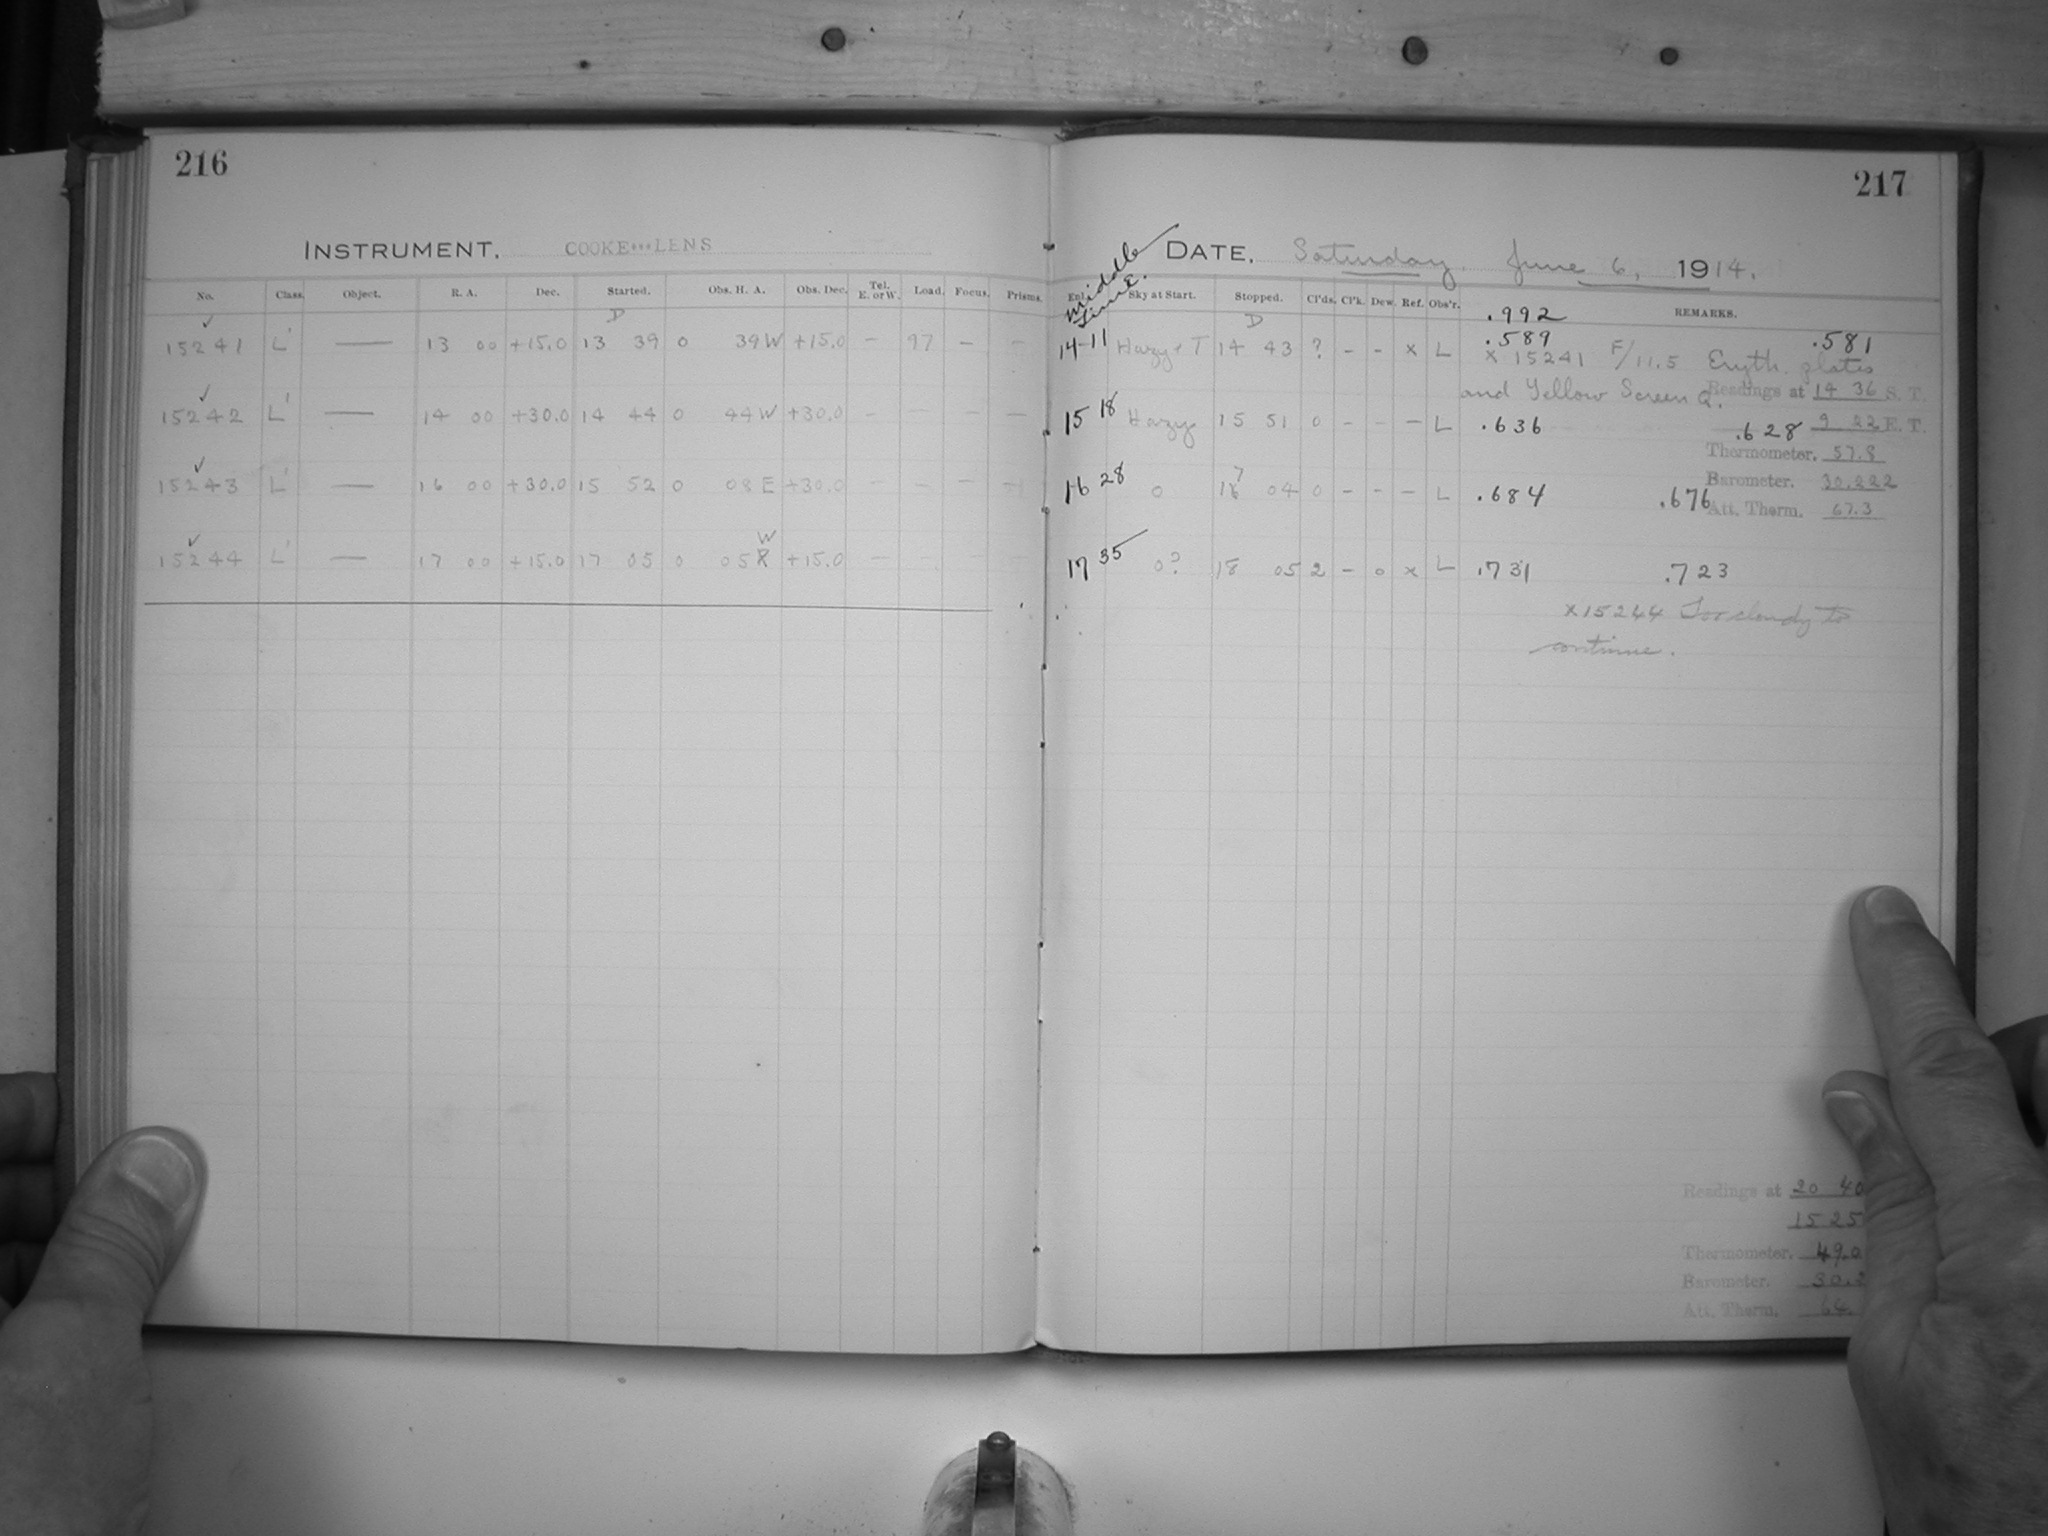 216
INSTRUMENT. COOKE LENS
No. Class. Object. R. A. Dec. Started. Obs. H. A. Obs. Dec. Tel. E. or W. Load. Focus. Prisms.
D
15241 L' — 13 00 +15.0 13 39 0 39 W +15.0 – 97 – –
15242 L' — 14 00 +30.0 14 44 0 44 W +30.0 – – –
15243 L' — 16 00 +30.0 15 52 0 08 E +30.0 – – – –
W
15244 L' — 17 00 +15.0 17 05 0 05 +15.0 –
217
middle time.
DATE. Saturday, June 6, 1914.
Sky at Start. Stopped. Cl'ds. Cl'k. Dew. Ref. Obs'r. REMARKS.
.992
D
14 11 Hazy + T 14 43 ? – – x L .589 .581
x 15241 F/11.5 Eryth. plates
and Yellow Screen Q.
Readings at 14 36 S. T.
15 18 Hazy 15 51 0 – – – L .636 .628
9 22 E. T.
Thermometer. 57.8
Barometer. 30.222
16 28 0 17 04 0 – – – L .684 .676
Att. Therm. 67.3
17 35 0? 18 05 2 – 0 x L .731 .723
x15244 Too cloudy to
continue.
Readings at 20 40
15 25
Thermometer. 49.0
Barometer. 30.2
Att. Therm. 64.